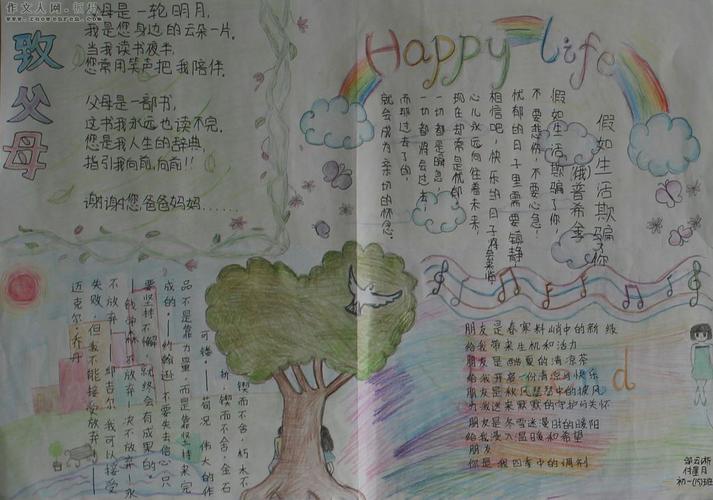 作文人网·板报
www.zuowenren.com
致父母
父母是一轮明月,
我是您身边的云朵一片.
当我读书夜半,
您常用笑声把我陪伴.
父母是一部书,
这书我永远也读不完.
您是我人生的辞典,
指引我向前,向前!!
谢谢您,爸爸妈妈......
Happy Life
假如生活欺骗你
(俄)普希金
假如生活欺骗了你,
不要悲伤,不要心急!
忧郁的日子里需要镇静
相信吧,快乐的日子将会来临
心儿永远向往着未来,
现在却常是忧郁.
一切都是瞬息,
一切都将会过去;
而那过去了的,
就会成为亲切的怀恋.
锲而不舍,朽木不
折,锲而不舍,金石
可镂.——荀况 伟大的作
品不是靠力量,而是靠坚持来完
成的.——约翰逊 不要失去信心,只
要坚持不懈,就终会有成果的.
——钱学森 不放弃!决不放弃!永
不放弃!——邱吉尔 我可以接受
失败,但我不能接受放弃!——
迈克尔·乔丹
朋友是春寒料峭中的新绿
给我带来生机和活力
朋友是酷夏的清凉茶
给我开启一份清凉可快乐
朋友是秋风瑟瑟中的披风
为我送来默默的守护与关怀
朋友是冬雪迷漫时的暖阳
给我浸入温暖和希望
朋友
你是我四季中的调剂
d
付星月
初一(15)班